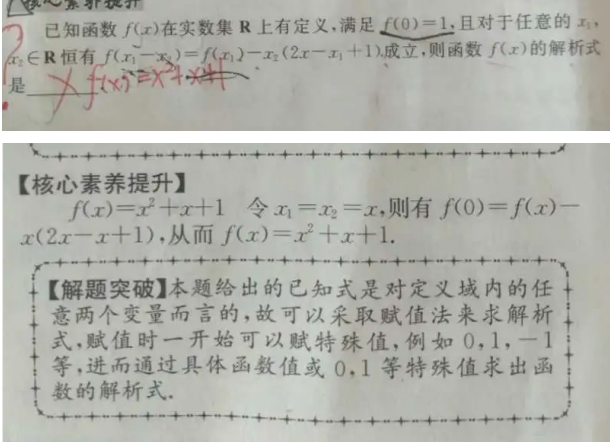 核心素养提升
已知函数 f(x)在实数集 R 上有定义,满足 f(0)=1,且对于任意的 x₁,
x₂∈R 恒有 f(x₁-x₂)=f(x₁)-x₂(2x-x₁+1)成立,则函数 f(x)的解析式
是
f(x)=x²+x+1
【核心素养提升】
f(x)=x²+x+1 令 x₁=x₂=x,则有 f(0)=f(x)-
x(2x-x+1),从而 f(x)=x²+x+1.
【解题突破】本题给出的已知式是对定义域内的任
意两个变量而言的,故可以采取赋值法来求解析
式,赋值时一开始可以赋特殊值,例如 0,1,-1
等,进而通过具体函数值或 0,1 等特殊值求出函
数的解析式.